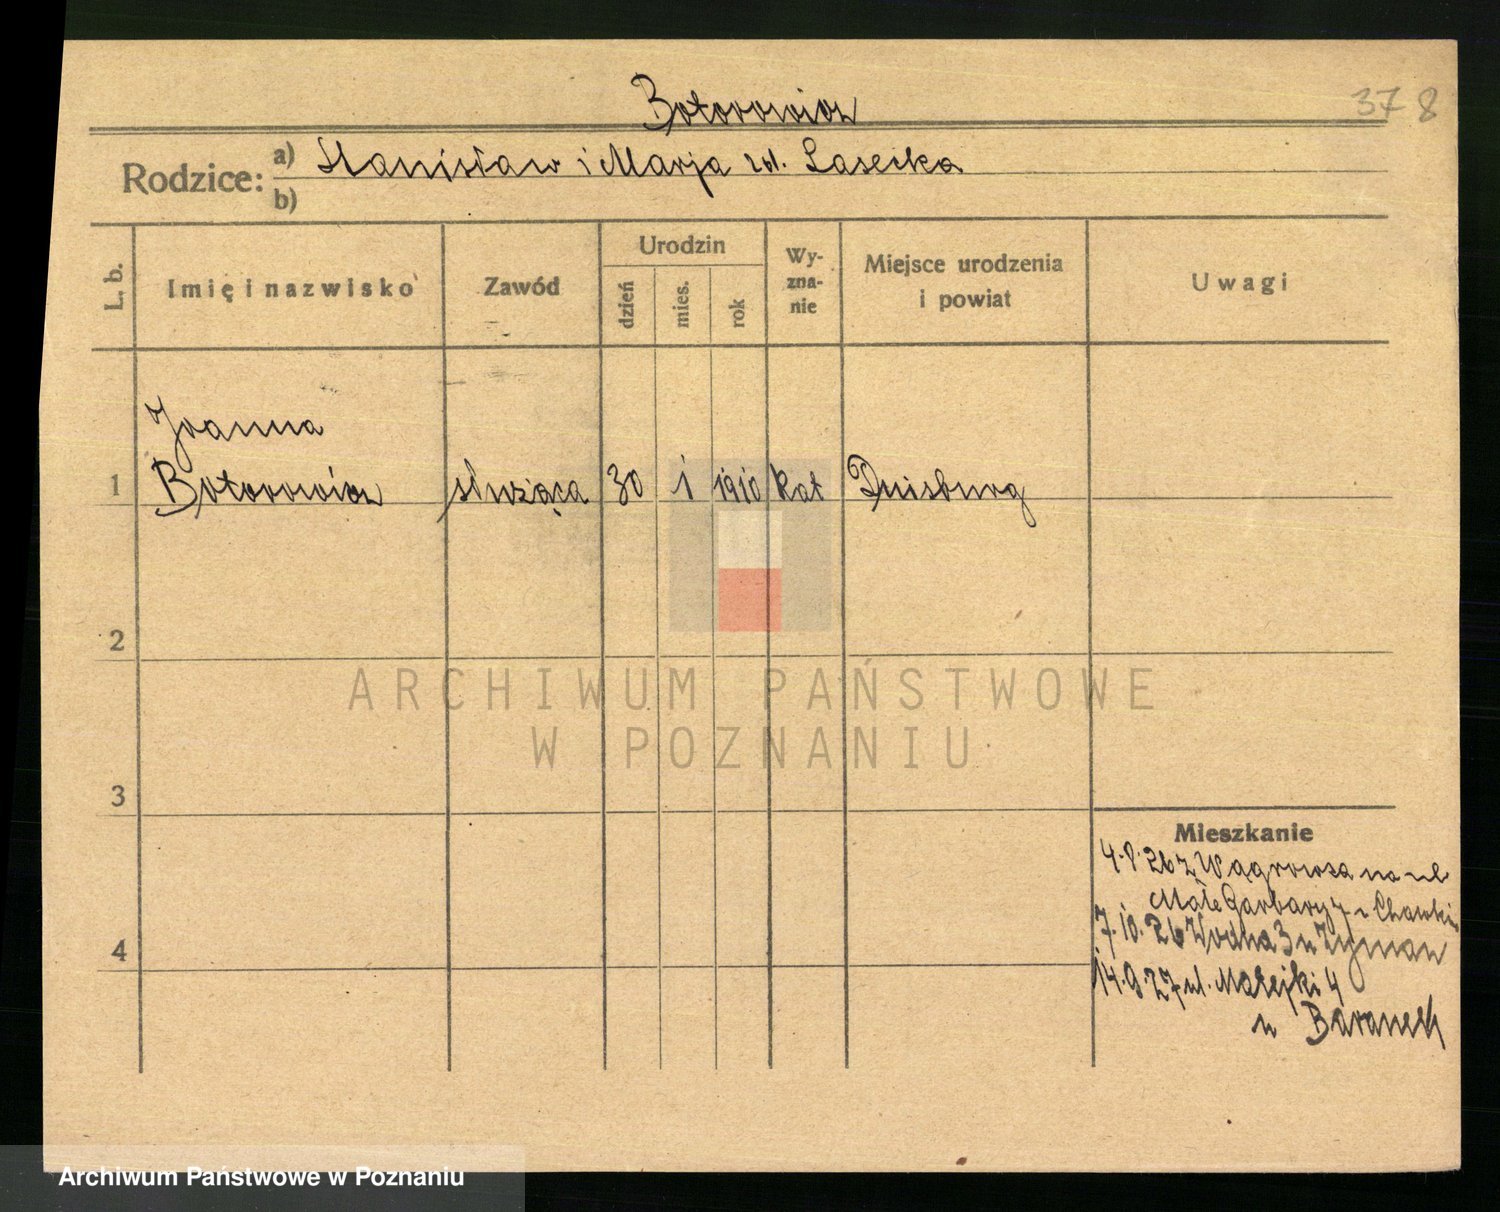 Botorowicz
37 8
Rodzice: a) Stanisław i Marja zd. Lasecka
b)
L. b.
Imię i nazwisko
Zawód
Urodzin
dzień
mies.
rok
Wy-
zna-
nie
Miejsce urodzenia
i powiat
Uwagi
Joanna
1 Botorowicz służąca 30 1 1910 kat Duisburg
2
3
4
ARCHIWUM PAŃSTWOWE
W POZNANIU
Mieszkanie
4.8.26 z Wągrowca na ul
Małe Garbary 7 u
7.10.26 Wodna 3 u Zyman
14.9.27 ul. Matejki 4
u Baranek
Archiwum Państwowe w Poznaniu